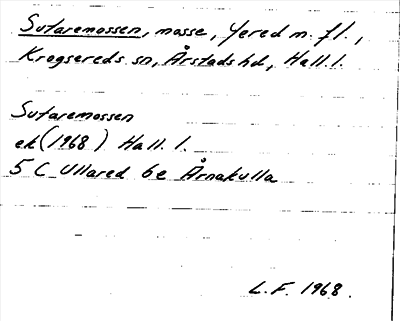 Sutaremossen, mosse, Yered m. fl.,
Krogsereds sn, Årstads hd, Hall. l.
Sutaremossen
ek (1968) Hall. l.
5 C Ullared 6e Årnakulla
L.F. 1968.